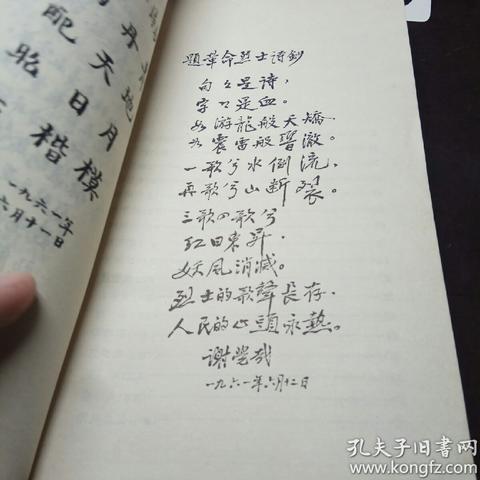 丹
地
配天月
胎日模
楷
一九六一年
六月十一日
題革命烈士诗鈔
句々是诗，
字々是血。
如游龍般夭矯．
如震雷般響澈。
一歌兮水倒流，
再歌兮山断裂。
三歌四歌兮
紅日東昇．
妖風消滅。
烈士的歌聲長存．
人民的心頭永熱。
谢觉哉
一九六一年六月十二日
孔夫子旧书网
www.kongfz.com